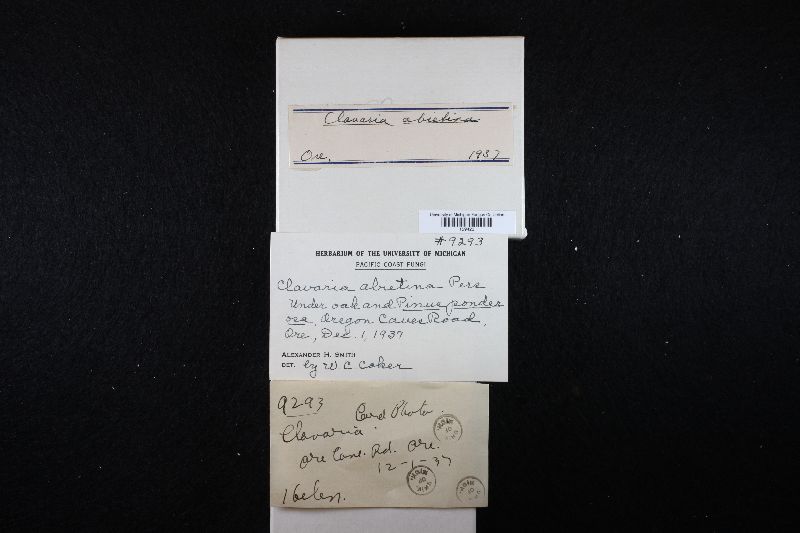 Clavaria abietina
Ore. 1937
University of Michigan Fungus Collection
#9293
HERBARIUM OF THE UNIVERSITY OF MICHIGAN
PACIFIC COAST FUNGI
Clavaria abietina Pers
Under oak and Pinus ponder
osa, Oregon Caves Road,
Ore., Dec. 1, 1937
ALEXANDER H. SMITH
DET. by W C Coker
9293 Card Photo.
Clavaria
Ore Cave. Rd. Ore.
12-1-37